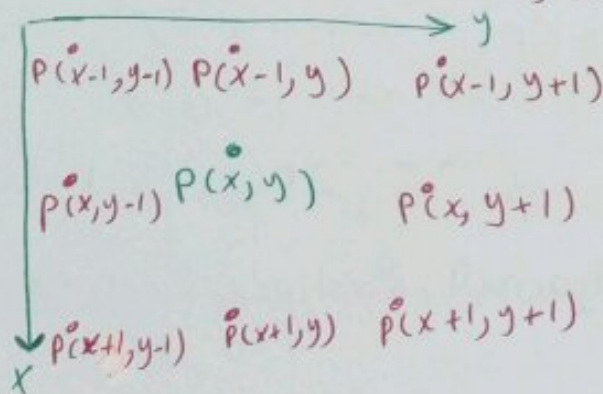 y
p(x-1,y-1) p(x-1,y) p(x-1, y+1)
p(x,y-1) p(x,y) p(x, y+1)
p(x+1,y-1) p(x+1,y) p(x+1,y+1)
x